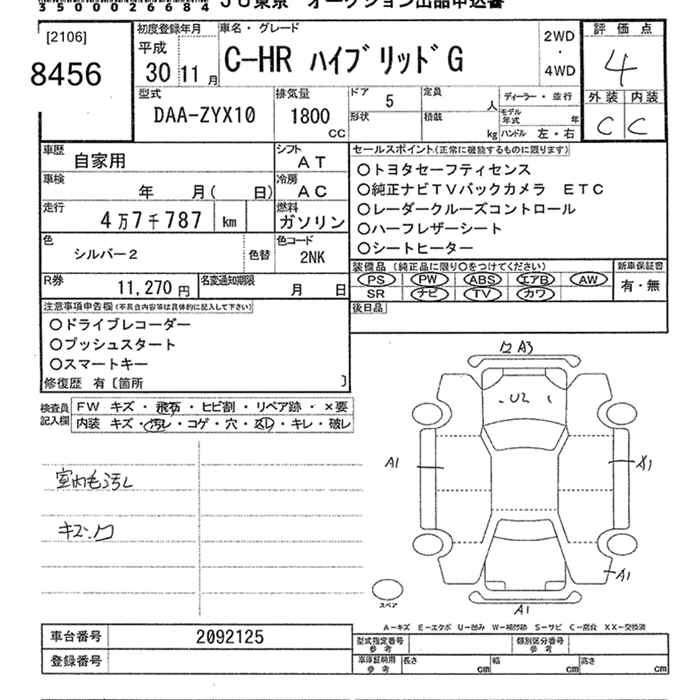 35002684 JU東京 オークション出品申込書
[2106]
8456
初度登録年月
平成
30 11 月
車名・グレード
C-HR ハイブリッドG
2WD
・
4WD
評価点
4
外装 内装
C C
型式
DAA-ZYX10
排気量
1800
CC
ドア 5
形状
定員 人
積載 kg
ディーラー・並行
モデル年式 年
ハンドル 左・右
車歴 自家用
シフト AT
車検 年 月( 日)
冷房 AC
走行 4万7千787 km
燃料 ガソリン
色 シルバー2
色替
色コード 2NK
R券 11,270 円
名変通知期限 月 日
セールスポイント(正常に機能するものに限ります)
○トヨタセーフティセンス
○純正ナビTVバックカメラ ETC
○レーダークルーズコントロール
○ハーフレザーシート
○シートヒーター
装備品(純正品に限り○をつけてください)
PS PW ABS エアB AW
SR ナビ TV カワ
新車保証書
有・無
後日品
注意事項申告欄(不具合内容等は具体的に記入して下さい)
○ドライブレコーダー
○プッシュスタート
○スマートキー
修復歴 有〔箇所 〕
検査員記入欄
FW キズ・飛石・ヒビ割・リペア跡・×要
内装 キズ・汚レ・コゲ・穴・スレ・キレ・破レ
室内毛汚レ
キズ、凹
A3
U2
A1
A1
A1
スペア
A-キズ E-エクボ U-凹み W-補修跡 S-サビ C-腐食 XX-交換済
車台番号 2092125
登録番号
型式指定番号
参考
個別区分番号
参考
車庫証明用
参考
長さ cm
幅 cm
高さ cm